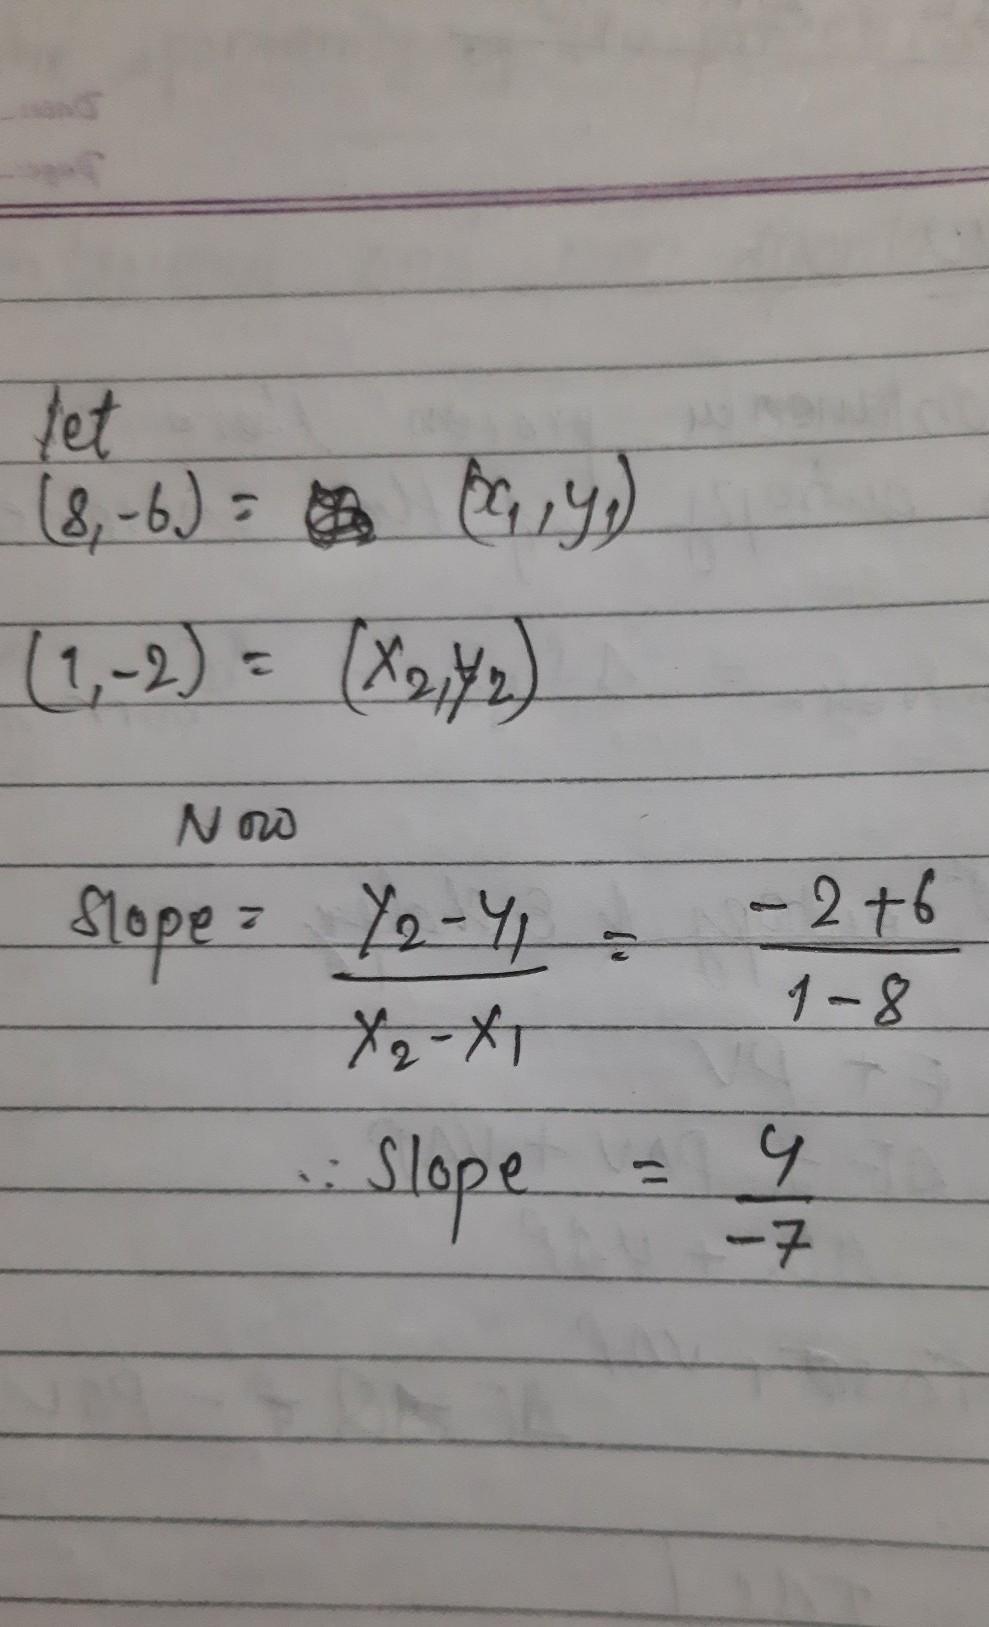 let
(8,-6) = (x₁,y₁)
(1,-2) = (x₂,y₂)
Now
Slope = y₂-y₁ / x₂-x₁ = -2+6 / 1-8
∴ Slope = 4 / -7